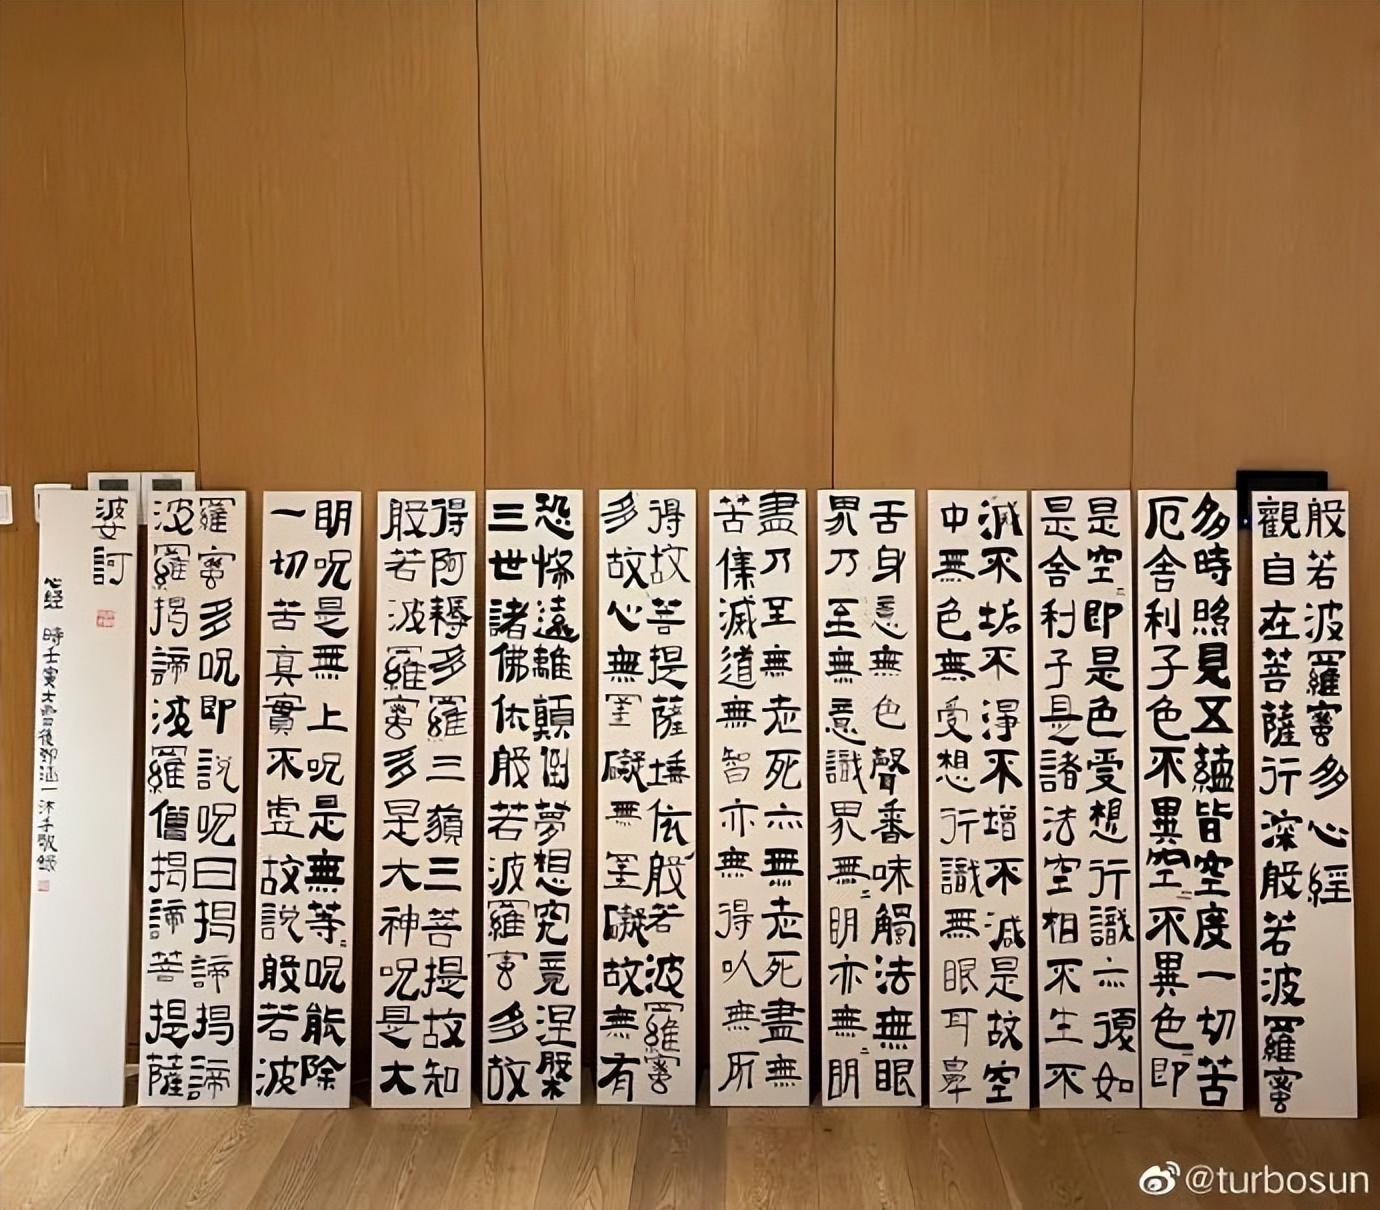 般若波羅蜜多心經
觀自在菩薩行深般若波羅蜜
多時照見五蘊皆空度一切苦
厄舍利子色不異空〻不異色〻即
是空〻即是色受想行識亦復如
是舍利子是諸法空相不生不
滅不垢不淨不增不減是故空
中無色無受想行識無眼耳鼻
舌身意無色聲香味觸法無眼
界乃至無意識界無〻明亦無〻明
盡乃至無老死亦無老死盡無
苦集滅道無智亦無得以無所
得故菩提薩埵依般若波羅蜜
多故心無罣礙無罣礙故無有
恐怖遠離顛倒夢想究竟涅槃
三世諸佛依般若波羅蜜多故
得阿耨多羅三藐三菩提故知
般若波羅蜜多是大神呪是大
明呪是無上呪是無等〻呪能除
一切苦真實不虛故說般若波
羅蜜多呪即說呪曰揭諦揭諦
波羅揭諦波羅僧揭諦菩提薩
婆訶
心经 時壬寅大雪後鄧涵一沐手敬錄
@turbosun